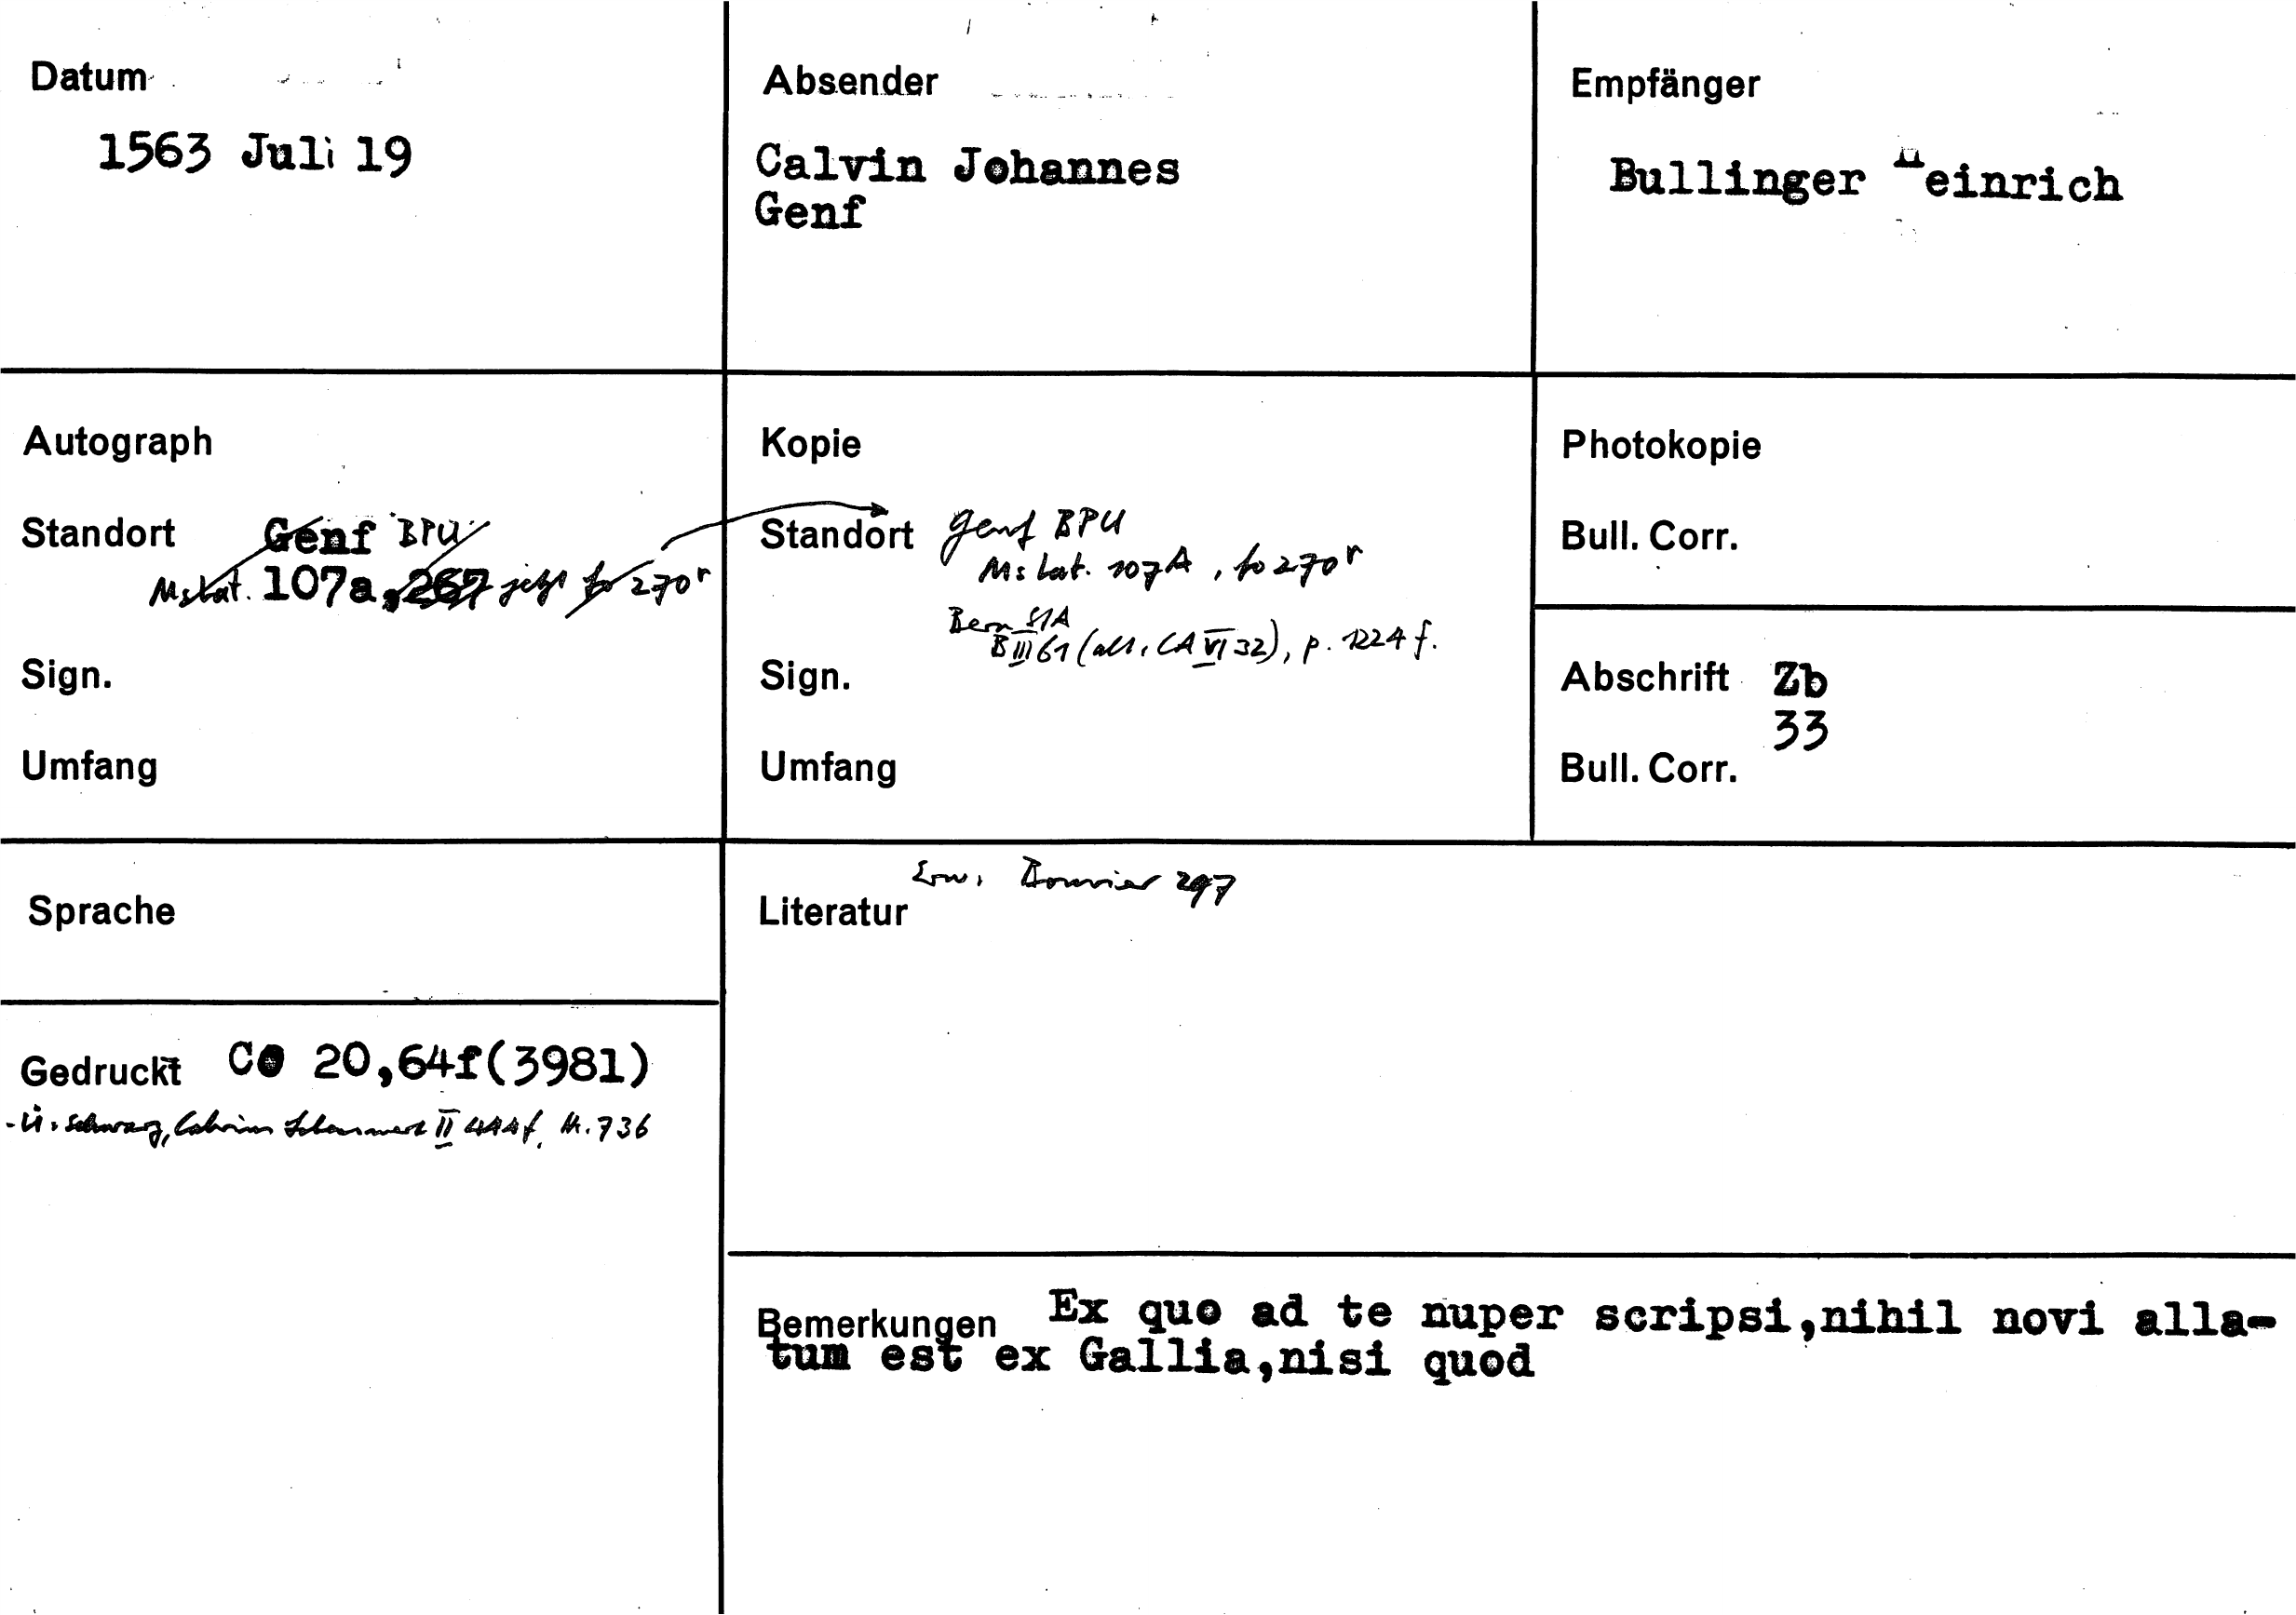 Datum
1563 Juli 19
Absender
Calvin Johannes
Genf
Empfänger
Bullinger Heinrich
Autograph
Standort Genf BPU
Ms Lat. 107a, 267 jetzt fo 270r
Sign.
Umfang
Kopie
Standort Genf BPU
Ms Lat. 107A, fo 270r
Bern StA
B III 61 (alt. CA VI 32), p. 1224 f.
Sign.
Umfang
Photokopie
Bull. Corr.
Abschrift Zb
33
Bull. Corr.
Sprache
Gedruckt CO 20,64f(3981)
- Ü: Schwarz, Calvins Lebenswerk II 444f, Nr. 736
Erw. Bouvier 297
Literatur
Bemerkungen Ex quo ad te nuper scripsi,nihil novi alla-
tum est ex Gallia,nisi quod